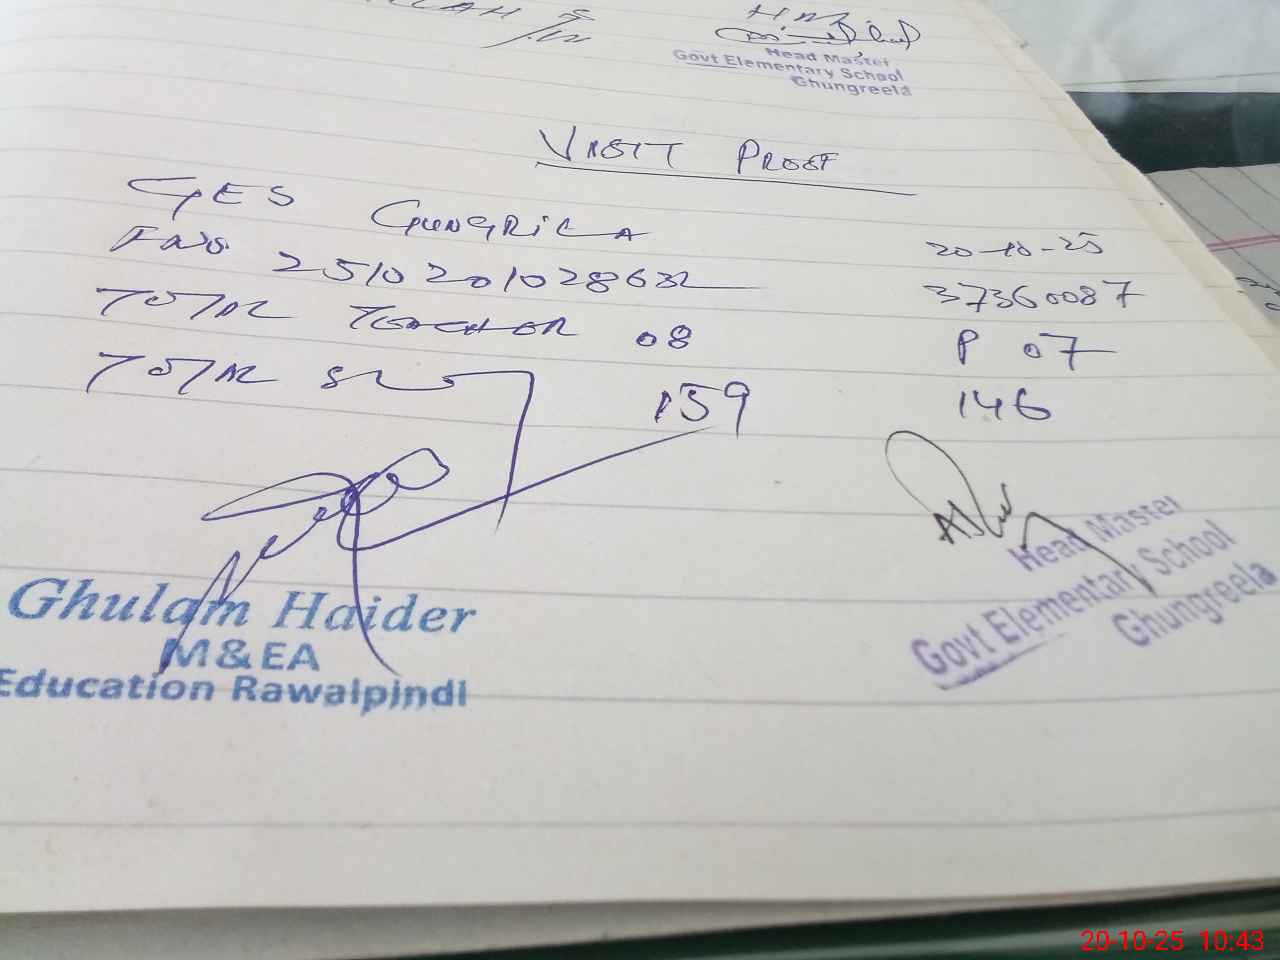 H.M
Head Master
Govt Elementary School
Ghungreela
VISIT PROOF
GES GUNGRILA 20-10-25
251020102863 37360087
TOTAL TEACHER 08 P 07
TOTAL 159 146
Head Master
Govt Elementary School
Ghungreela
Ghulam Haider
M&EA
Education Rawalpindi
20-10-25 10:43